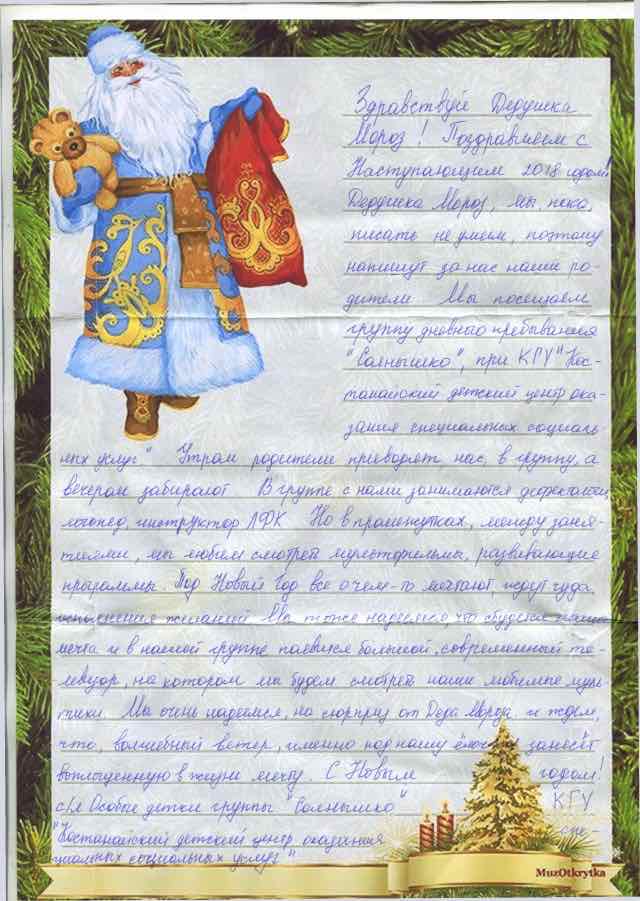 Здравствуй Дедушка
Мороз! Поздравляем с
Наступающим 2018 годом!
Дедушка Мороз, мы, пока,
писать не умеем, поэтому
напишут за нас наши ро-
дители Мы посещаем
группу дневного пребывания
"Солнышко", при КГУ "Кос-
танайский детский центр ока-
зания специальных социаль-
ных услуг" Утром родители приводят нас, в группу, а
вечером забирают В группе с нами занимаются дефектолог,
логопед, инструктор ЛФК Но в промежутках, между заня-
тиями, мы любим смотреть мультфильмы, развивающие
программы. Под Новый Год все о чем-то мечтают, ждут чуда,
исполнения желаний Мы тоже надеемся, что сбудется наша
мечта и в нашей группе появится большой, современный те-
левизор, на котором мы будем смотреть наши любимые муль-
тики. Мы очень надеемся, на сюрприз от Деда Мороза и ждем,
что, волшебный ветер, именно под нашу ёлочку занесёт
воплощенную в жизнь мечту. С Новым годом!
с/л Особые детки группы "Солнышко" КГУ
"Костанайский детский центр оказания спе-
циальных социальных услуг"
MuzOtkrytka